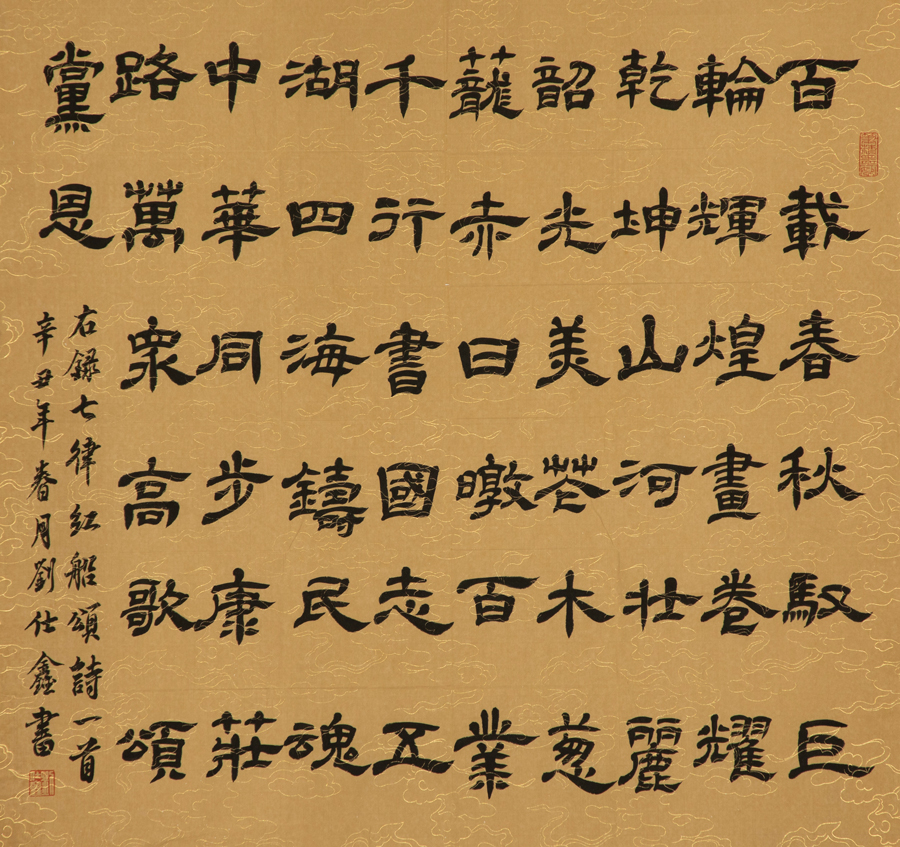 百載春秋馭巨
輪輝煌畫卷耀
乾坤山河壯麗
韶光美花木葱
蘢赤日暾百業
千行書國志五
湖四海鑄民魂
中華同步康莊
路萬眾高歌頌
黨恩
右録七律紅船頌詩一首
辛丑年春月劉仕鑫書